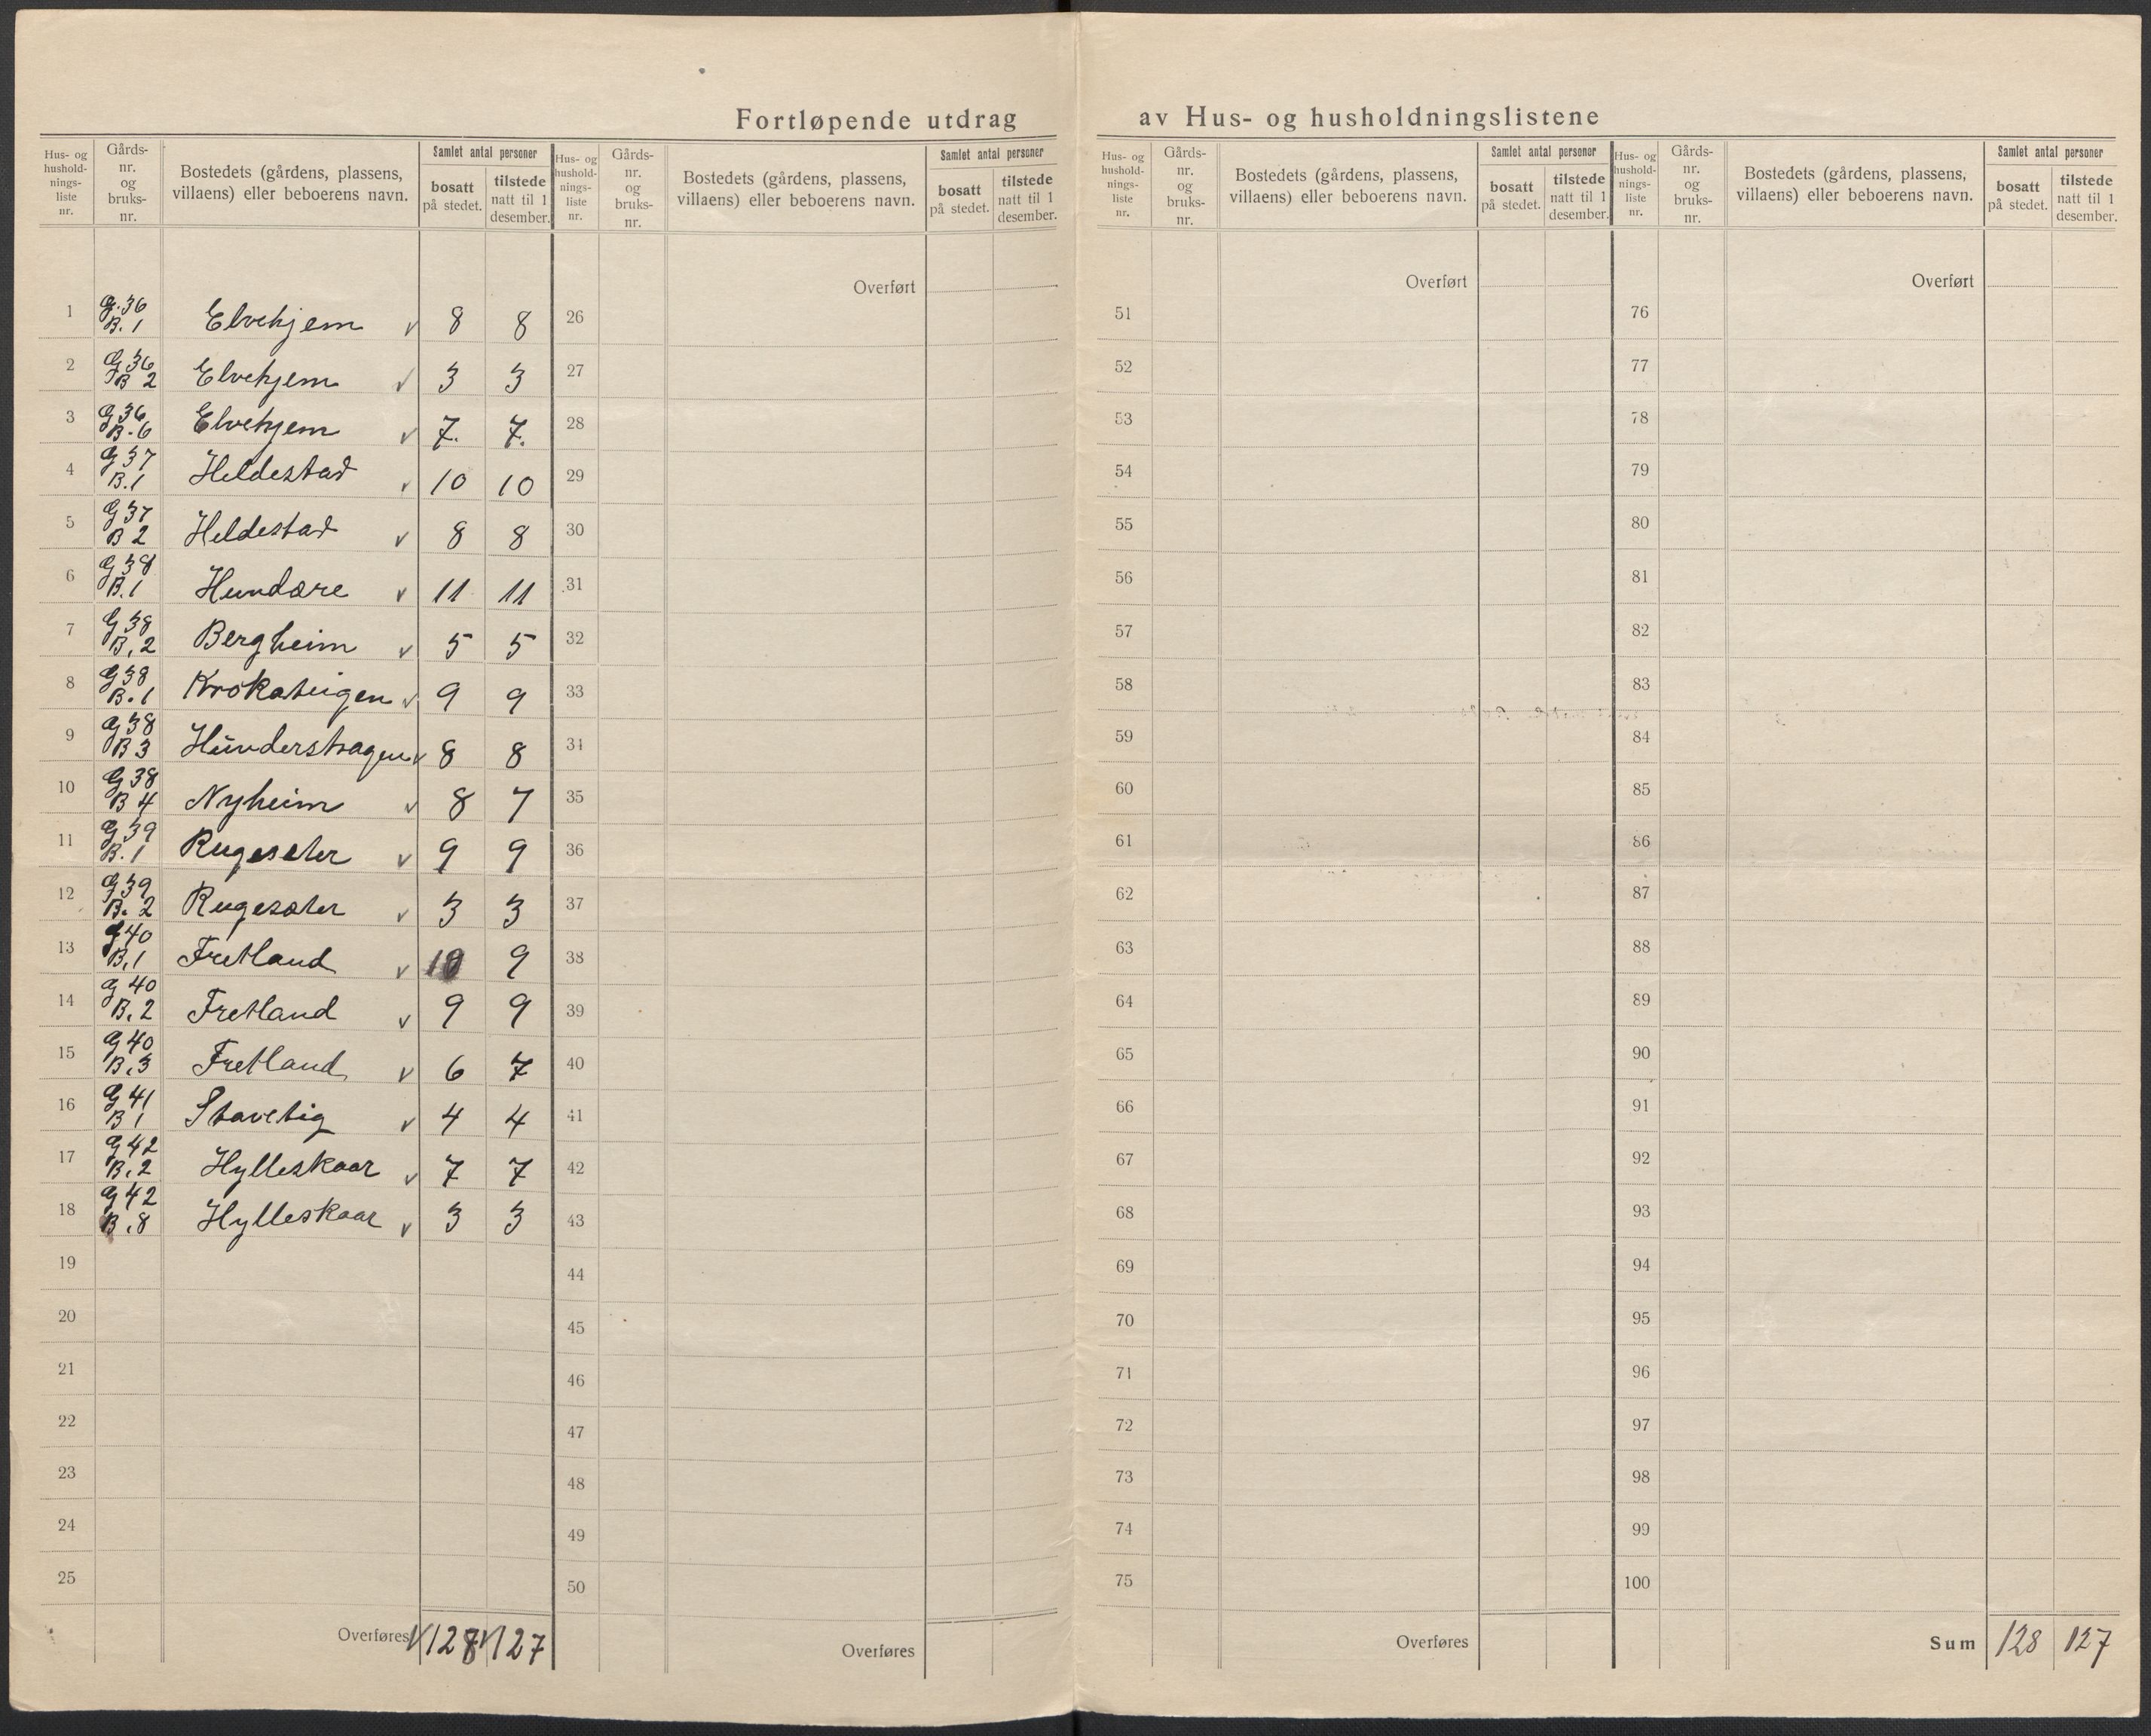 Fortløpende utdrag av Hus- og husholdningslistene
Hus- og hushold-nings-liste nr. | Gårds-nr. og bruks-nr. | Bostedets (gårdens, plassens, villaens) eller beboerens navn. | Samlet antal personer | bosatt på stedet. | tilstede natt til 1 desember.
1 G. 36 B. 1 Elvehjem v 8 8
2 G 36 B 2 Elvehjem v 3 3
3 G 36 B. 6 Elvehjem v 7. 7.
4 G 37 B. 1 Heldestad v 10 10
5 G 37 B 2 Heldestad v 8 8
6 G 38 B. 1 Hundere v 11 11
7 G 38 B. 2 Bergheim v 5 5
8 G 38 B. 1 Krokateigen v 9 9
9 G 38 B 3 Hunderstragen v 8 8
10 G 38 B 4 Nyheim v 8 7
11 G 39 B. 1 Rugeseter v 9 9
12 G 39 B. 2 Rugeseter v 3 3
13 G 40 B. 1 Fretland v 10 9
14 G 40 B. 2 Fretland v 9 9
15 G 40 B. 3 Fretland v 6 7
16 G 41 B 1 Stavetig v 4 4
17 G 42 B. 2 Hylleskaar v 7 7
18 G 42 B. 8 Hylleskaar v 3 3
19
20
21
22
23
24
25
Overføres v 128 v 127
Hus- og hushold-nings-liste nr. | Gårds-nr. og bruks-nr. | Bostedets (gårdens, plassens, villaens) eller beboerens navn. | Samlet antal personer | bosatt på stedet. | tilstede natt til 1 desember.
Overført
26
27
28
29
30
31
32
33
34
35
36
37
38
39
40
41
42
43
44
45
46
47
48
49
50
Overføres
Hus- og hushold-nings-liste nr. | Gårds-nr. og bruks-nr. | Bostedets (gårdens, plassens, villaens) eller beboerens navn. | Samlet antal personer | bosatt på stedet. | tilstede natt til 1 desember.
Overført
51
52
53
54
55
56
57
58
59
60
61
62
63
64
65
66
67
68
69
70
71
72
73
74
75
Overføres
Hus- og hushold-nings-liste nr. | Gårds-nr. og bruks-nr. | Bostedets (gårdens, plassens, villaens) eller beboerens navn. | Samlet antal personer | bosatt på stedet. | tilstede natt til 1 desember.
Overført
76
77
78
79
80
81
82
83
84
85
86
87
88
89
90
91
92
93
94
95
96
97
98
99
100
Sum 128 127